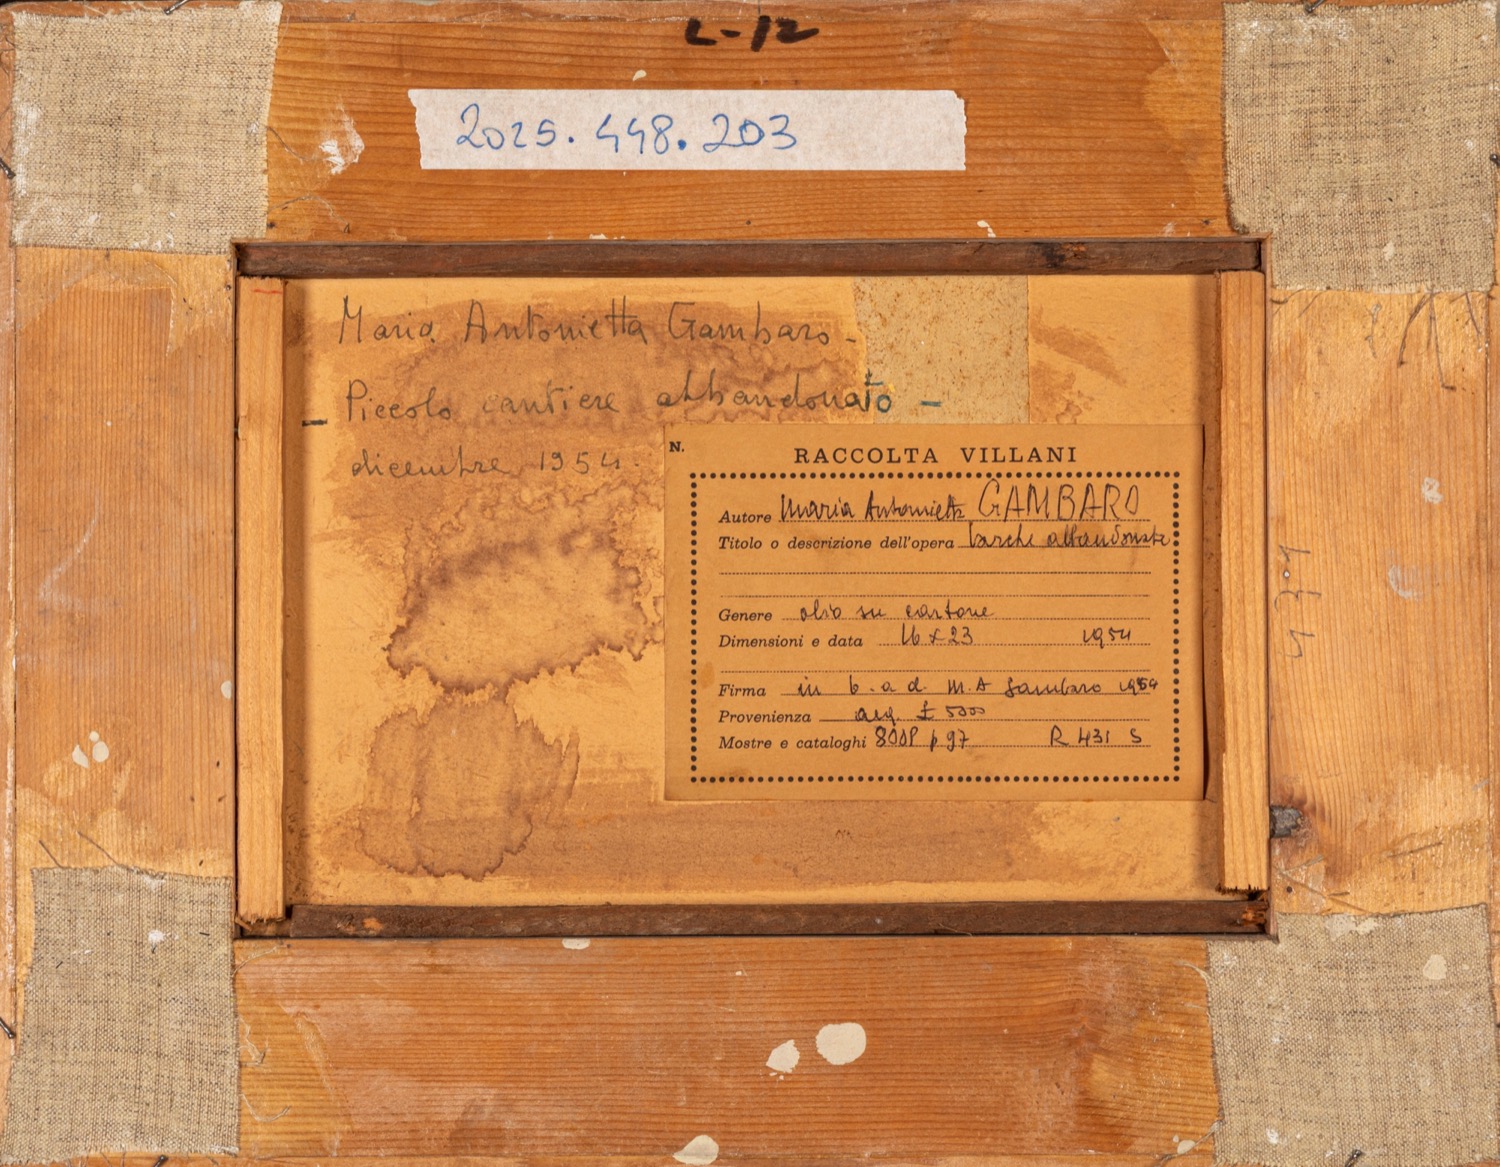 L-12
2025.448.203
Maria Antonietta Gambaro -
- Piccolo cantiere abbandonato -
dicembre 1954.
N.
RACCOLTA VILLANI
Autore Maria Antonietta GAMBARO
Titolo o descrizione dell'opera barche abbandonate
Genere olio su cartone
Dimensioni e data 16 x 23 1954
Firma in b. a d. M. A Gambaro 1954
Provenienza acq. £ 5000
Mostre e cataloghi 800P p 97 R 431 S
431